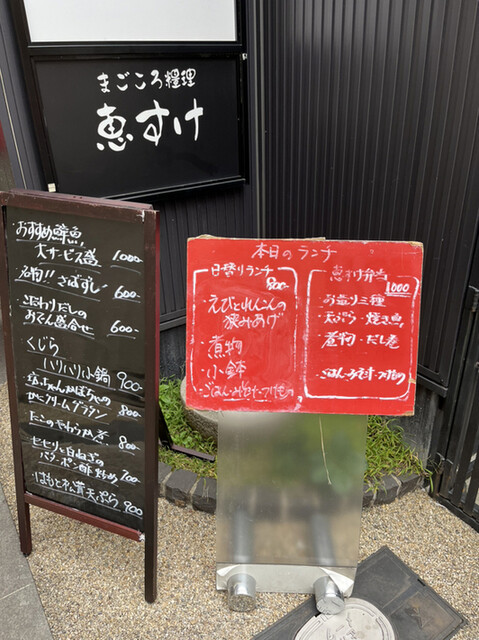 まごころ料理
恵すけ
おすすめ鮮魚
大サービス盛 1000
名物!! さばずし 600
おでん盛合せ 600-
くじら
ハリハリ小鍋 900-
カニクリームグラタン 800-
たこのやわらか煮 800-
セセリと白ねぎの
バターポン酢炒め 700-
はもと松茸天ぷら 900
本日のランチ
日替りランチ
800-
・えびとれんこんの
挟みあげ
・煮物
・小鉢
・ごはん・みそ汁・つけもの
恵すけ弁当
1000
・お造り三種
・天ぷら・焼き魚
・煮物・だし巻
・ごはん・みそ汁・つけもの